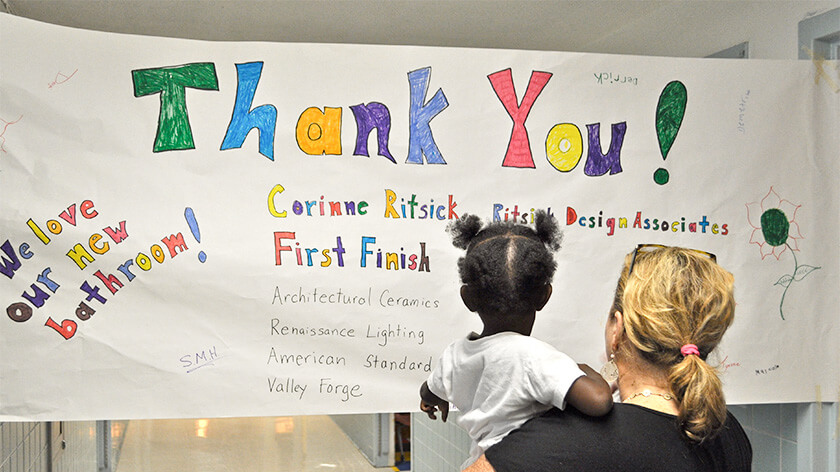 Thank You!
Derrick
Corinne Ritsick Ritsick Design Associates
First Finish
We love
our new
bathroom!
Architectural Ceramics
Renaissance Lighting
American Standard
Valley Forge
SMH